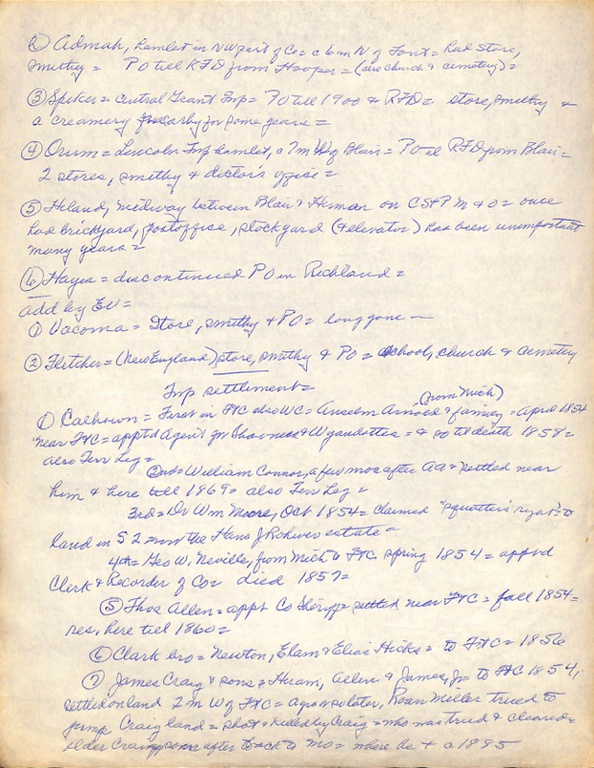 ② Admah, hamlet in NW part of Co = c 6 m N of Font = had store,
smithy = PO till RFD from Hooper = (also church & cemetery) =
③ Spiker = central Grant Twp = PO till 1900 & RFD = store, smithy &
a creamery nearby for some years =
④ Orum = Lincoln Twp hamlet, a 7 m W of Blair = PO til RFD from Blair =
2 stores, smithy & doctor's office =
⑤ Hiland, midway between Blair & Herman on CStPM & O = once
had brickyard, postoffice, stockyard (& elevator) has been unimportant
many years =
⑥ Hayes = discontinued PO in Richland =
add by EV =
① Vacoma = Store, smithy & PO = long gone —
② Fletcher = (New England) store, smithy & PO = school, church & cemetery
Twp settlement =
① Calhoun = First in FtC also WC = Anselm Arnold & family (from Mich) = April 1854
near FtC = apptd Agent for Shawnees & Wyandottes = & so til death 1858 =
also Terr Leg =
2nd = William Connor, a few mos after AA & settled near
him & here till 1869 = also Terr Leg =
3rd = Dr Wm Moore, Oct 1854 = claimed "squatter's right" to
land in S 2 = now the Hans J Rohwer estate =
4th = Geo W. Neville, from Mich to FtC spring 1854 = apptd
Clerk & Recorder of Co = died 1857 =
⑤ Thos Allen = appt Co Sheriff = settled near FtC = fall 1854 =
res. here till 1860 =
⑥ Clark bro = Newton, Elam & Elias Hicks = to FtC = 1856
⑦ James Craig & sons = Hiram, Allen & James, Jr = to FtC 1854,
settled on land 2 m W of FtC = ayr or so later, Roan Miller tried to
jump Craig land = shot & killed by Craig = who was tried & cleared =
older Craig soon after back to Mo = where he + a 1885